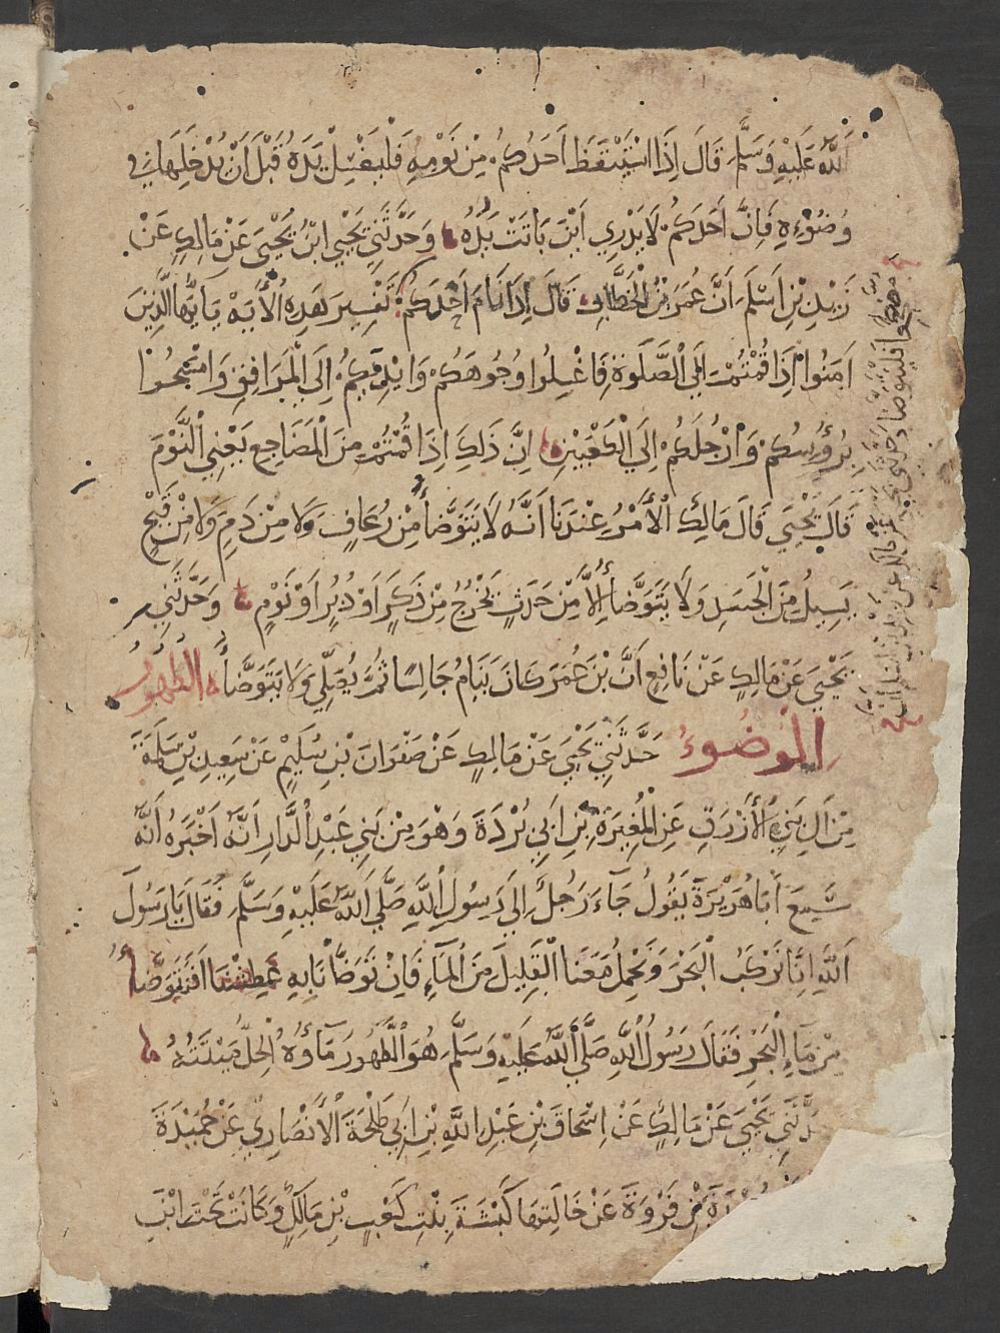 اَللَّهُ عَلَيْهِ وَسَلَّمَ قَالَ إِذَا اسْتَيْقَظَ اَحَدُكُمْ مِنْ نَوْمِهِ فَلْيَغْسِلْ يَدَهُ قَبْلَ اَنْ يُدْخِلَهَا فِي
وُضُوْءِهِ فَاِنَّ اَحَدَكُمْ لَا يَدْرِي اَيْنَ بَاتَتْ يَدُهُ وَحَدَّثَنِي يَحْيَي ابْنُ يَحْيَى عَنْ مَالِكٍ عَنْ
زَيْدِ بْنِ اَسْلَمَ اَنَّ عُمَرَ بْنَ الْخَطَّابِ قَالَ اِذَا نَامَ اَحَدُكُمْ تَفْسِيرَ هَذِهِ الْأَيَةْ يَايُّهَا الَّذِينَ
اَمَنُوا اِذَا قُمْتُمْ اِلَي الصَّلَوةِ فَاغْسِلُوا وُجُوهَكُمْ وَايْدِيَكُمْ اِلَي الْمَرَافِقِ وَامْسَحُوْا
بِرُؤُسِكُمْ وَاَرْجُلَكُمْ اِلَي الْكَعْبَيْنِ اِنَّ ذَلِكَ اِذَا قُمْتُمْ مِنَ الْمَضَاجِعِ يَعْنِي الْنَّوْمَ
قَالَ يَحْيَي قَالَ مَالِكٌ اَلْأَمْرُ عِنْدَنَا اَنَّهُ لَا يَتَوَضَّأُ مِنْ رُعَافٍ وَلَا مِنْ دَمٍ وَلَا مِنْ قَيْحٍ
يَسِيلُ مِنَ الْجَسَدِ وَلَا يَتَوَضَّأُ إِلاَّ مِنْ حَدَثٍ يَخْرُجُ مِنْ ذَكَرٍ اَوْ دُبُرٍ اَوْ نَوْمٍ وَحَدَّثَنِي
يَحْيَى عَنْ مَالِكٍ عَنْ نَافِعٍ اَنَّ بْنَ عُمَرَ كَانَ يَنَامُ جَالِسًا ثُمَّ يُصَلِّي وَلَا يَتَوَضَّأُ الطَّهُورُ
الْوَضُوءُ حَدَّثَنِي يَحْيَي عَنْ مَالِكٍ عَنْ صَفْوَانَ بْنِ سُلَيْمٍ عَنْ سَعِيدِ بْنِ سَلَمَةَ
مِنْ اٰلِ بَنِي الْأَزْرَقِ عَنِ الْمُغِيرَةِ بْنِ اَبِي بُرْدَةَ وَهُوَ مِنْ بَنِي عَبْدِ الدَّارِ اَنَّهُ اَخْبَرَهُ اَنَّهُ
سَمِعَ اَبَا هُرَيْرَةَ يَقُولُ جَآءَ رَجُلٌ اِلَي رَسُولِ اللَّهِ صَلَّي اللَّهُ عَلَيْهِ وَسَلَّمَ فَقَالَ يَا رَسُولَ
اَللَّهِ اِنَّا نَرْكَبُ الْبَحْرَ وَنَحْمِلُ مَعَنَا الْقَلِيلَ مِنَ الْمَآءِ فَاِنْ تَوَضَّأْنَا بِهِ عَطِشْنَا اَفَنَتَوَضَّأُ
مِنْ مَآءِ الْبَحْرِ فَقَالَ رَسُولُ اللَّهِ صَلَّي اللَّهُ عَلَيْهِ وَسَلَّمَ هُوَ الْطَّهُورُ مَآؤُهُ الْحِلُّ مَيْتَتُهُ
حَدَّثَنِي يَحْيَي عَنْ مَالِكٍ عَنْ اِسْحَاقَ بْنِ عَبْدِ اللَّهِ بْنِ اَبِي طَلْحَةَ الْأَنْصَارِيِّ عَنْ حُمَيْدَةَ
بْنِ فَرْوَةَ عَنْ خَالَتِهَا كَبْشَةَ بِنْتِ كَعْبِ بْنِ مَالِكٍ وَكَانَتْ تَحْتَ ابْنِ
مُضْطَجِعًا فَلْيَتَوَضَّأْ وَحَدَّثَنِي يَحْيَي عَنْ مَالِكٍ عَنْ زَيْدِ بْنِ اَسْلَمَ اَنَّ